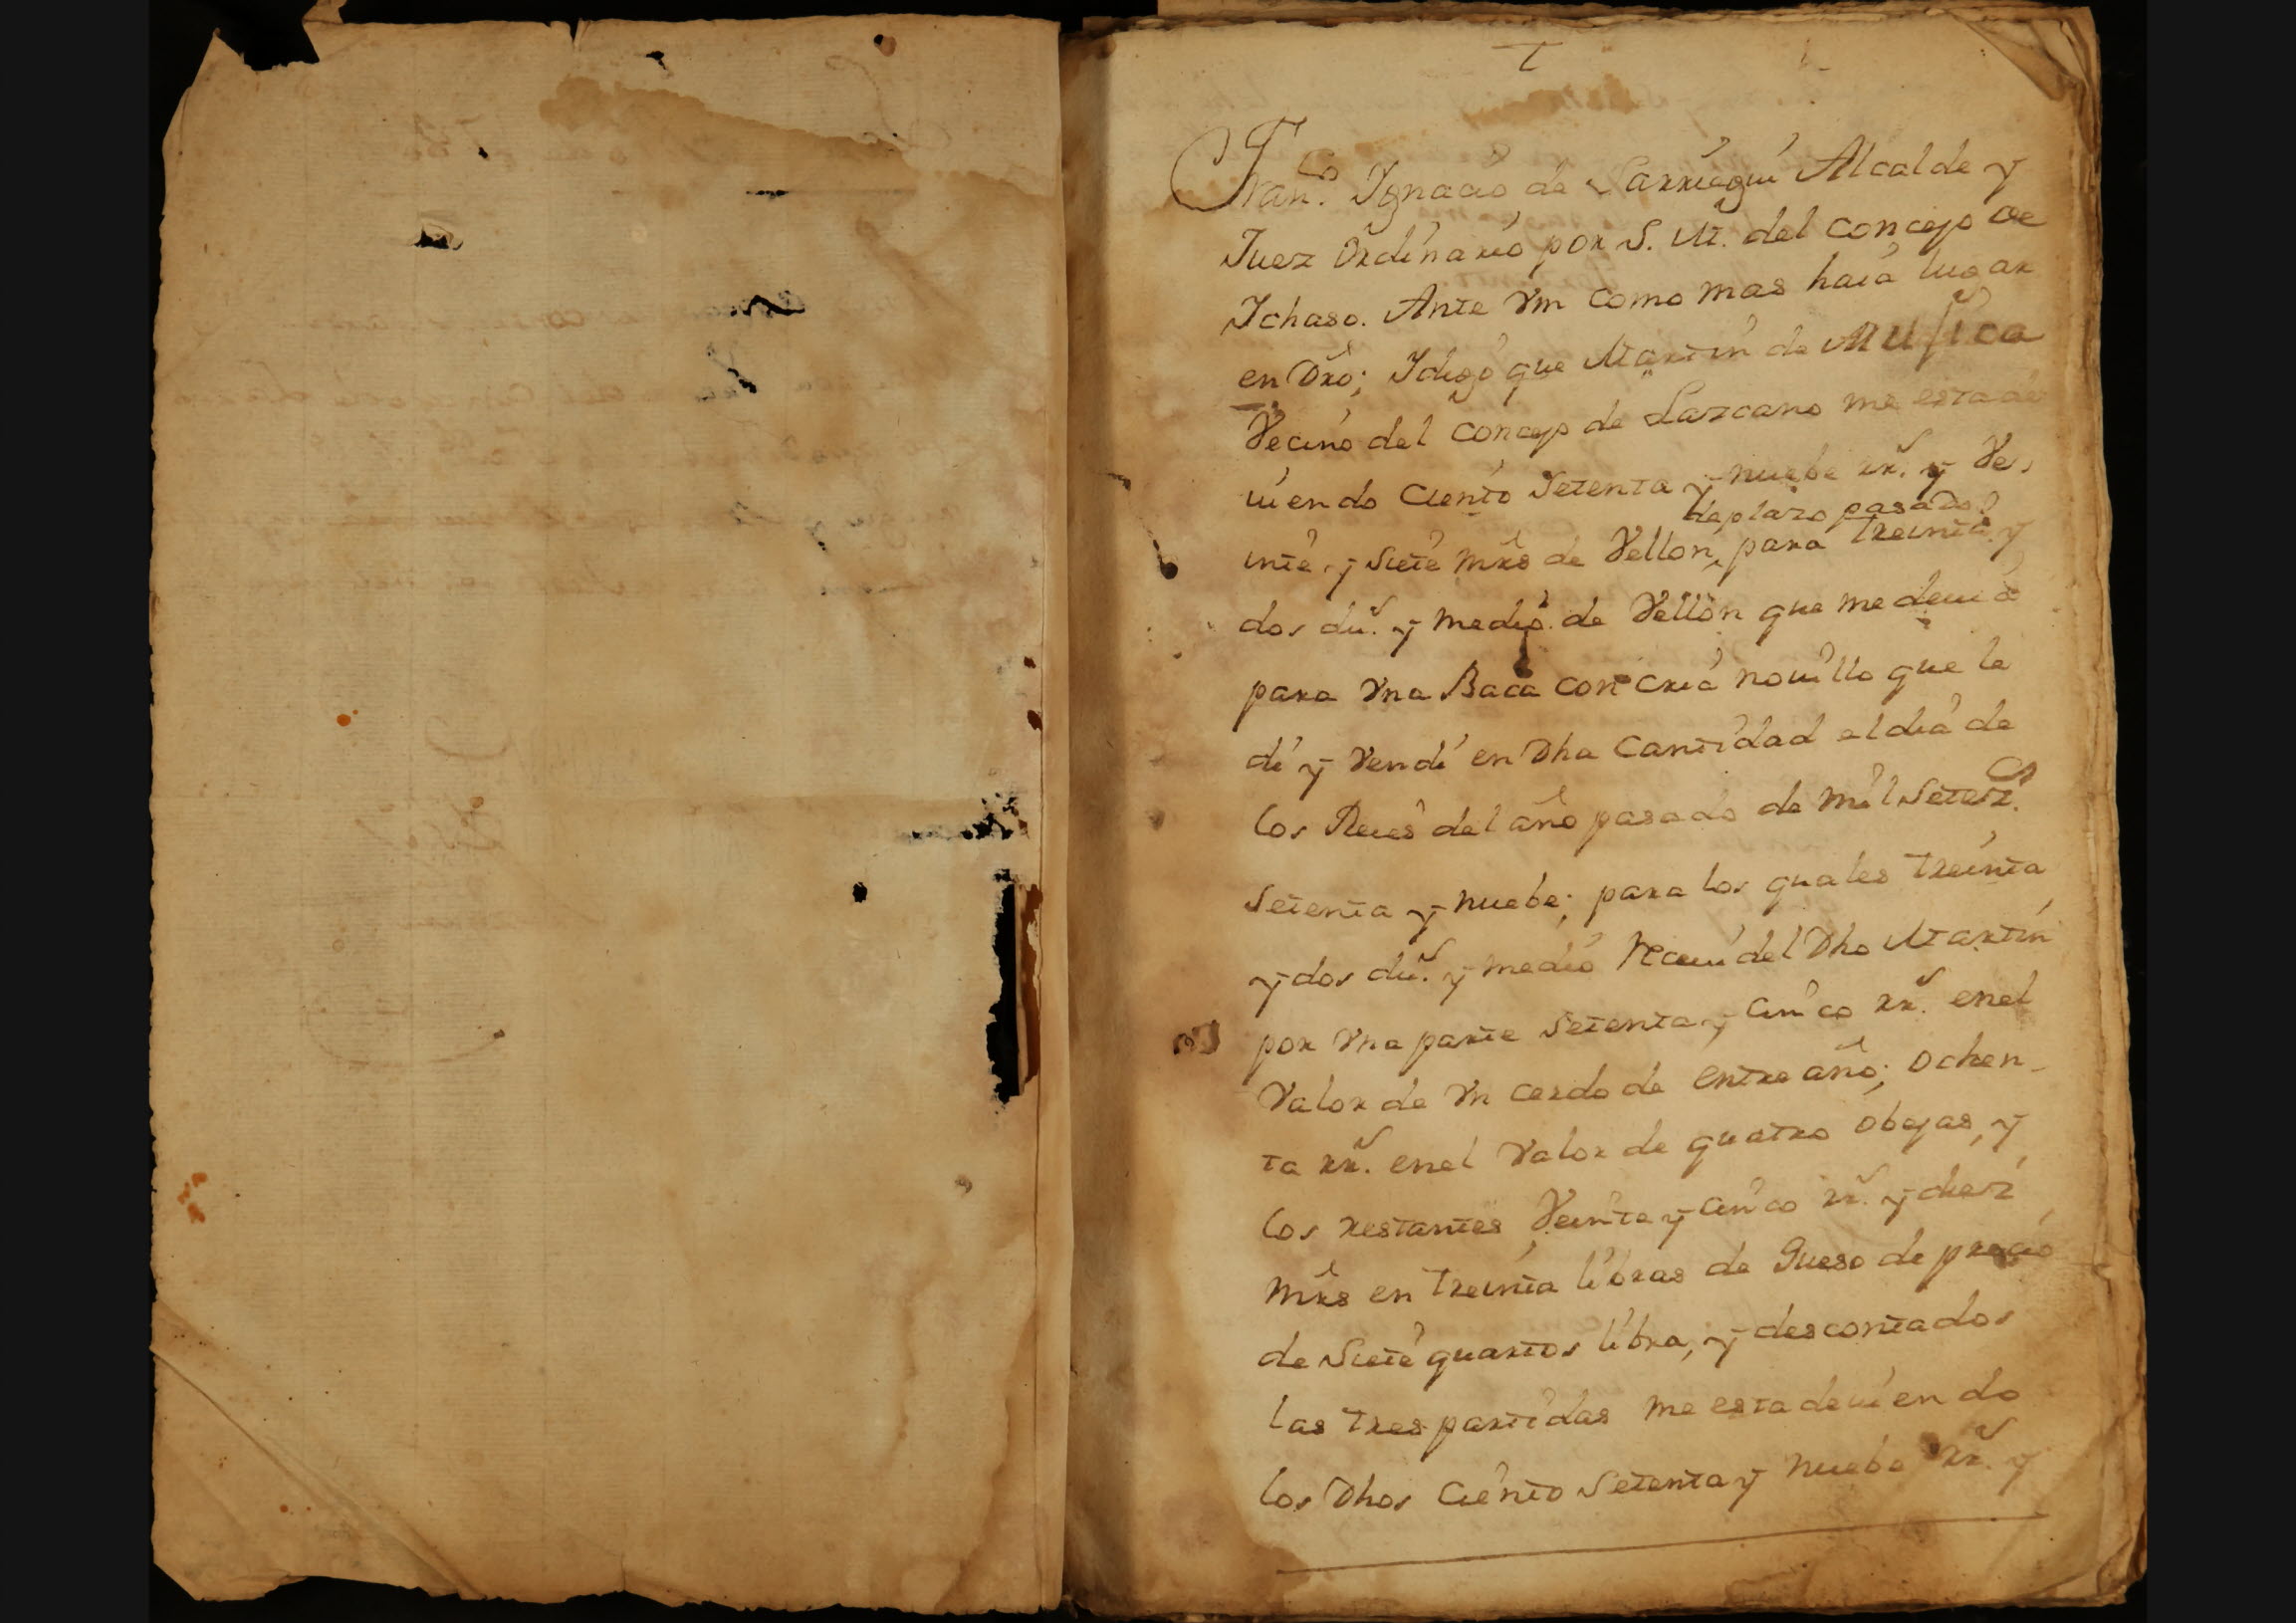 Fran.co Ignacio de Larriegui Alcalde y
Juez Ordinario por S. M. del concejo de
Ichaso. Ante Vm como mas haia lugar
en Dro; I digo que Martin de Musica
Vecino del concejo de Lazcano me esta de
uiendo Ciento Setenta y nuebe rr.s y Ve,
de plazo pasado
inte y Siete mrs de Vellon, para treinta y
dos du.s y medio de Vellon que me deuia
para Vna Baca con cria nouillo que le
di y Vendi en Dha Cantidad el dia de
los Reies del año pasado de mil Setez.s
Setenta y nuebe; para los quales treinta
y dos du.s y medio Reciui del Dho Martin
por Vna parte Setenta y cinco rr.s en el
Valor de Vn cerdo de entre año; ochen-
ta rr.s en el Valor de quatro obejas, y
los restantes Veinte y cinco rr.s y diez
mrs en treinta libras de Queso de precio
de Siete quartos libra, y descontados
las tres partidas me esta deuiendo
los Dhos Ciento Setenta y nuebe rr.s y